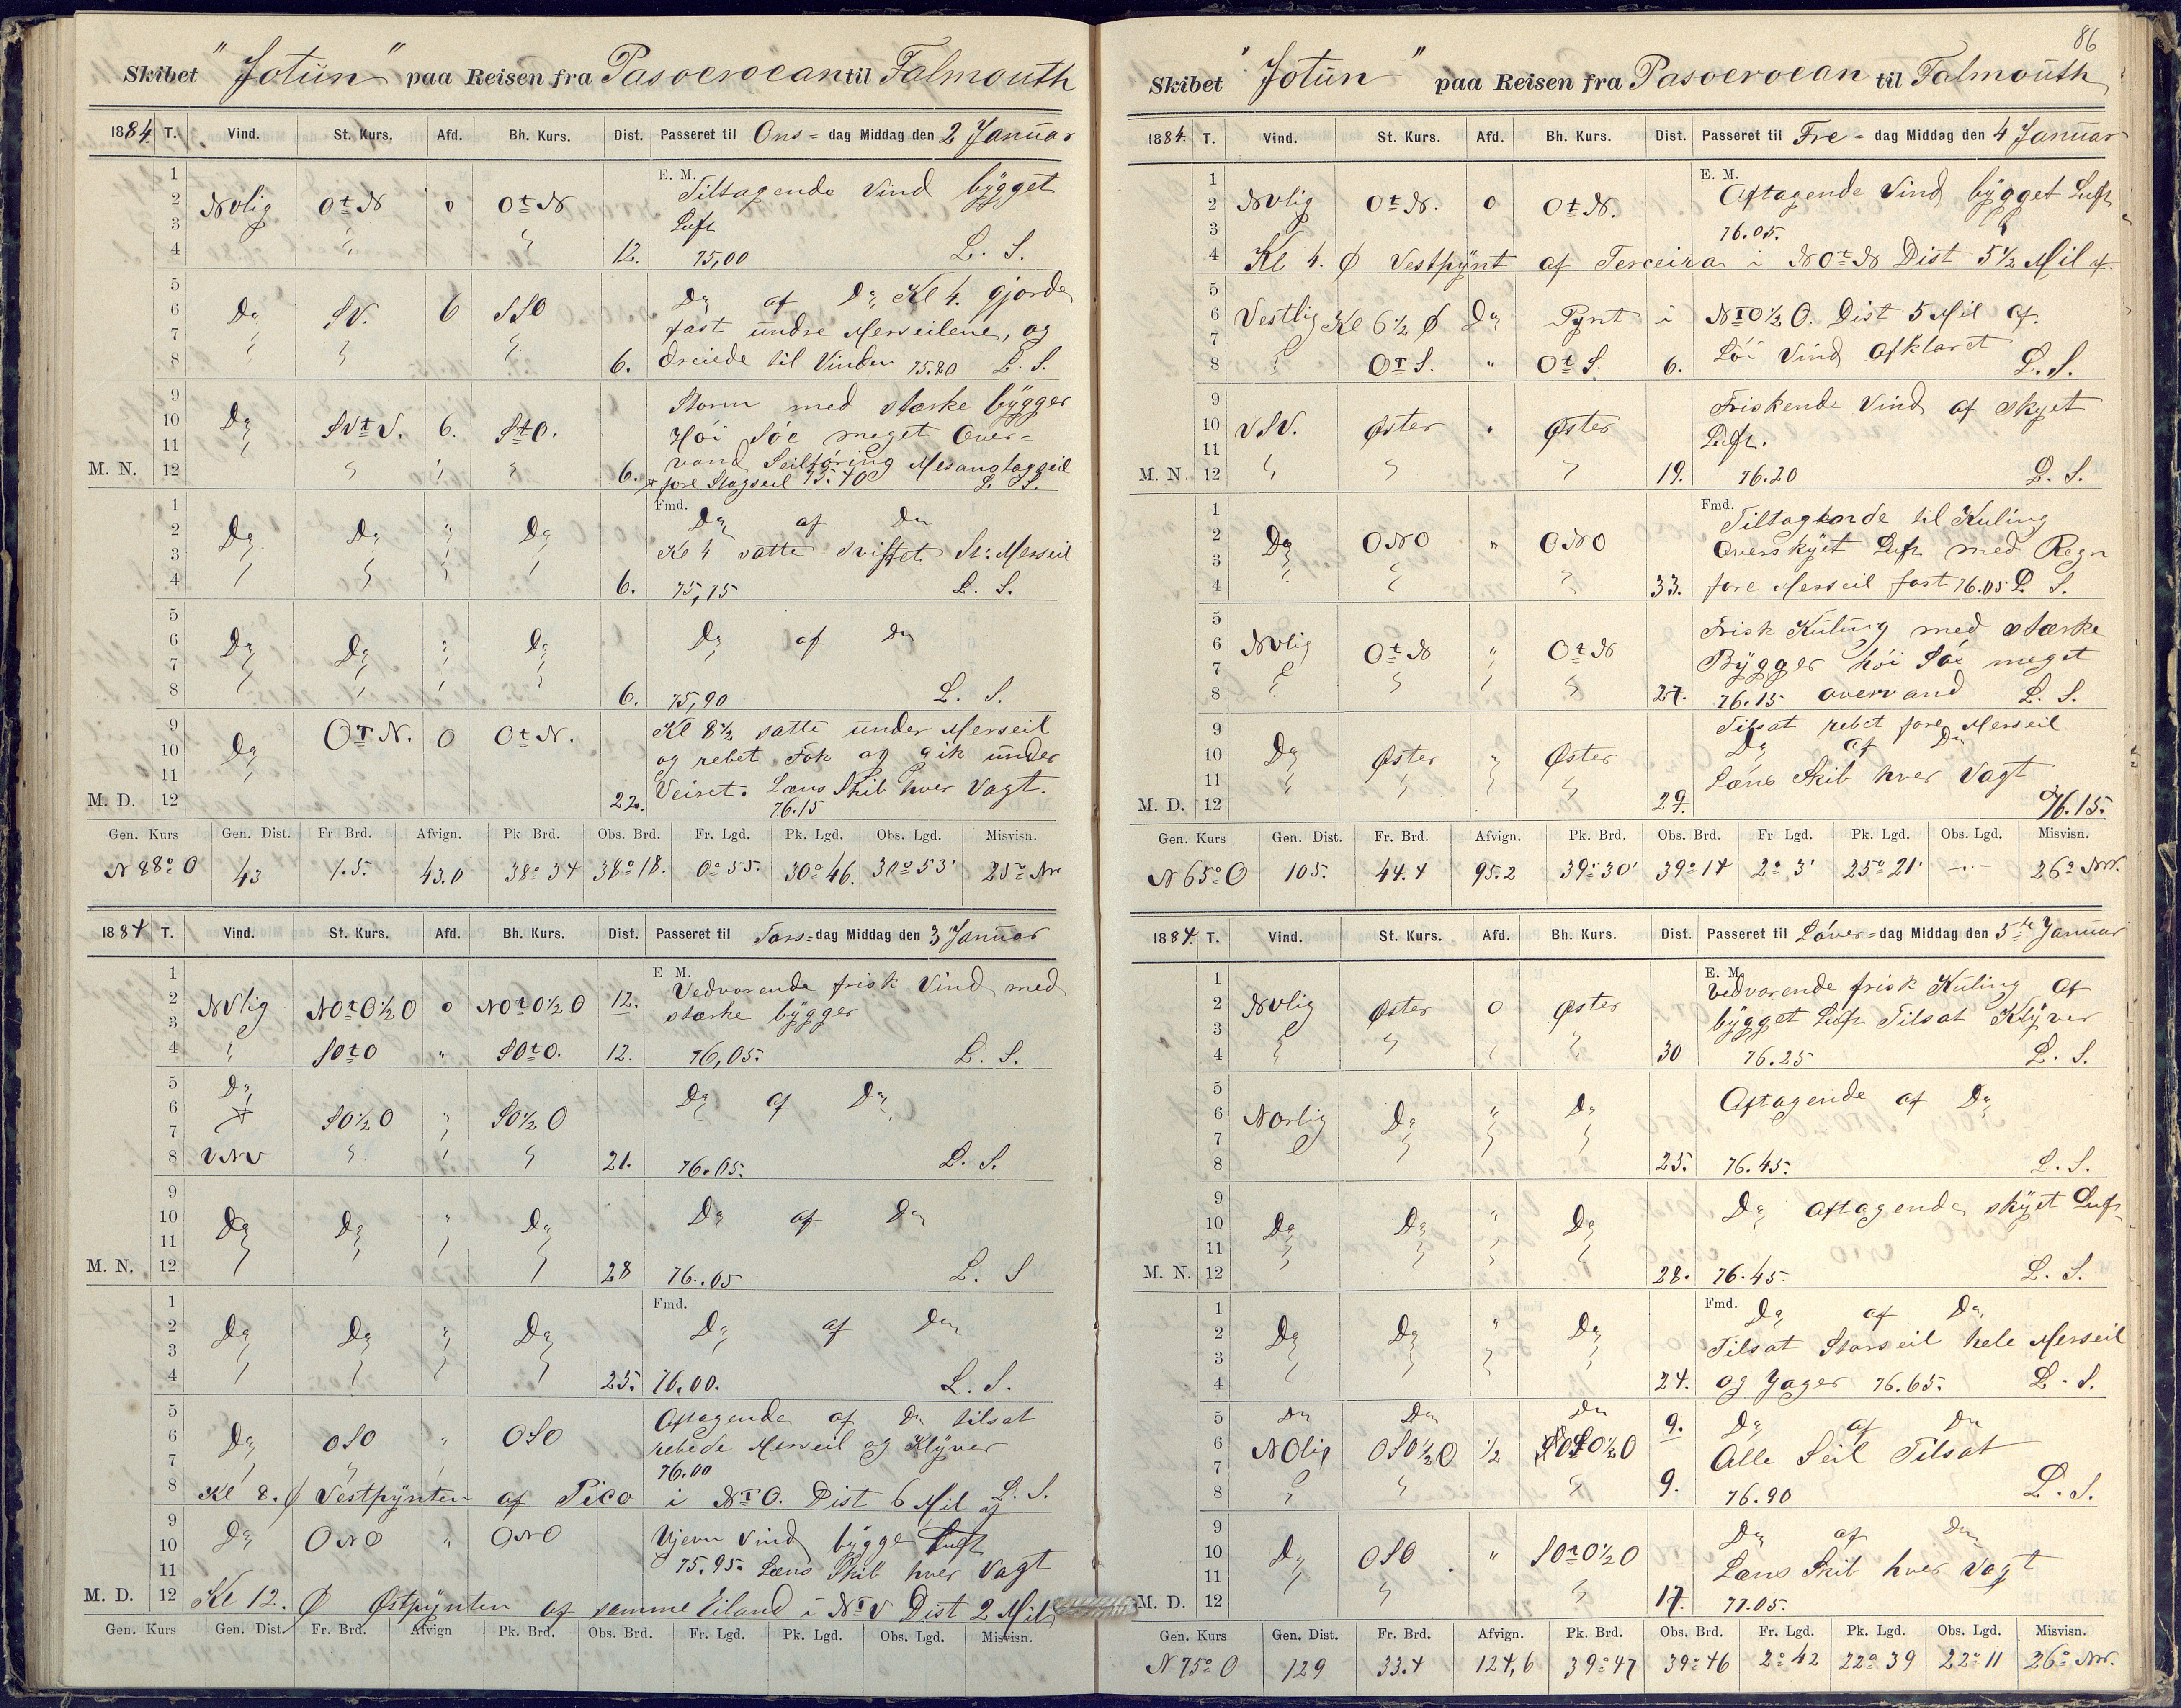 Skibet "Jotün" paa Reisen fra Pasoeroean til Falmouth
1884. T. Vind. St. Kurs. Afd. Bh. Kurs. Dist. Passeret til Ons= dag Middag den 2 Januar
1 E. M. Tiltagende Vind bÿgget
2 NVlig OtN 0 OtN
3 Luft
4 " " 12. 75,00 L. S.
5 Do af Do Kl 4. gjorde
6 Do SV. 6 SSO
7 fast undre Merseilene, og
8 " " 6. dreiede til Vinden 75.80 L. S.
9 Storm med stærke bÿgger
10 Do SVtV. 6. StO. Höi Söe meget Over=
11 vand Seilföring Mesanstagseil
M. N. 12 " " " 6. + fore Stagseil 75.70 L. S.
1 Fmd. Do af Do
2 Do Do " Do
3 Kl 4 satte svigtet St: Merseil
4 " " 6. 75,75 L. S.
5
6 Do Do " Do Do af Do
7
8 6. 75,90 L. S.
9 OTN. 0 OtN. Kl 8½ satte under Merseil
10 Do og rebet Fok og gik under
11 Veiret. Læns Skib hver Vagt.
M. D. 12 22. 76.15
Gen. Kurs Gen. Dist. Fr. Brd. Afvign. Pk Brd. Obs. Brd. Fr. Lgd. Pk. Lgd. Obs. Lgd. Misvisn.
N 88° O 43 1.5. 43.0 38° 34 38° 18. 0° 55. 30° 46. 30° 53' 25° Nv.
1884 T. Vind. St. Kurs. Afd. Bh. Kurs. Dist. Passeret til Tors= dag Middag den 3 Januar
1 E M. Vedvarende frisk Vind med
2 NVlig NOtO½O 0 NOtO½O 12. stærke bÿgger
3
4 " SOtO " SOtO. 12. 76,05. L. S.
5 Do
6 + SO½O " SO½O Do af Do
7
8 VNV " " " 21. 76.05. L. S.
9
10 Do Do " Do Do af Do
11
M. N. 12 28 76.05 L. S
1 Fmd.
2 Do Do " Do Do af Do
3
4 25. 76.00. L. S.
5 Aftagende af Do tilsat
6 Do OSO " OSO rebede Merseil og Klÿver
7 76.00
8 Kl 8. Ø Vestpÿnten af Pico i NTO. Dist 6 Mil af L. S.
9
10 Do ONO " ONO Ujevn Vind bÿgge Luft
11 75.95. Læns Skib hver Vagt
M. D. 12 Kl 12. Ø Östpÿnten af samme Eiland i NTV Dist 2 Mil
Gen. Kurs Gen. Dist. Fr. Brd. Afvign Pk. Brd. Obs. Brd. Fr. Lgd. Pk. Lgd. Obs. Lgd. Misvisn.
86
Skibet "Jotün" paa Reisen fra Pasoeroean til Falmouth
1884. T. Vind. St. Kurs. Afd. Bh. Kurs. Dist. Passeret til Fre= dag Middag den 4 Januar
1 E. M. Aftagende Vind bÿgget Luft
2 NVlig OtN. 0 OtN.
3 76.05.
4 Kl 4. Ø Vestpÿnt af Terceira i NOtN Dist 5½ Mil af.
5
6 Vestlig Kl 6½ Ø Do Pynt i NTO½O. Dist 5 Mil af.
7 Löi Vind Afklaret
8 " OTS. " OtS. 6. L. S.
9 Friskende Vind af skyet
10 VSV. Øster " Øster Luft.
11
M. N. 12 " " " 19. 76.20 L. S.
1 Fmd. Tiltagende til Kuling
2 Do ONO " ONO Overskÿet Luft med Regn
3
4 " " " 33. fore Merseil fast 76.05 L. S.
5 Frisk Kuling med stærke
6 NVlig OtN " OtN Bÿgger höi Söe meget
7
8 " " " " 27. 76.15 overvand L. S.
9 Tilsat rebet fore Merseil
10 Do Øster " Øster Do af Do
11 Læns Skib hver Vagt
M. D. 12 29. 76.15.
Gen. Kurs Gen. Dist. Fr. Brd. Afvign. Pk. Brd. Obs. Brd. Fr Lgd. Pk. Lgd. Obs. Lgd. Misvisn.
N 65° O 105. 44.4 95.2 39° 30' 39° 14 2° 3' 25° 21' —"— 26° NV.
1884. T. Vind. St. Kurs. Afd. Bh. Kurs. Dist. Passeret til Löver= dag Middag den 5te Januar
1 E. M. Vedvarende frisk Kuling af
2 NVlig Øster 0 Øster bÿgget Luft Tilsat Klÿver
3
4 " " " " 30 76.25 L. S.
5
6 Norlig Do " Do Aftagende af Do
7
8 25. 76.45. L. S.
9
10 Do Do " Do Do Aftagende skÿet Luft
11
M. N. 12 28. 76.45. L. S.
1 Fmd. Do af Do
2 Do Do " Do Tilsat Storseil hele Merseil
3
4 24. og Jager 76.65. L. S.
5 Do Do Do 9. Do af Do
6 NOlig OSO½O ½ SO½O Alle Seil Tilsat
7
8 " " " 9. 76.90 L. S.
9 Do af Do
10 Do OSO " SOtO½O Læns Skib hver Vagt
11
M. D. 12 17. 77.05.
Gen. Kurs Gen. Dist. Fr. Brd. Afvign. Pk. Brd. Obs. Brd. Fr. Lgd. Pk. Lgd. Obs. Lgd. Misvisn.
N 75° O 129 33.4 124,6 39° 47 39° 46 2° 42 22° 39 22° 11 26° NV.